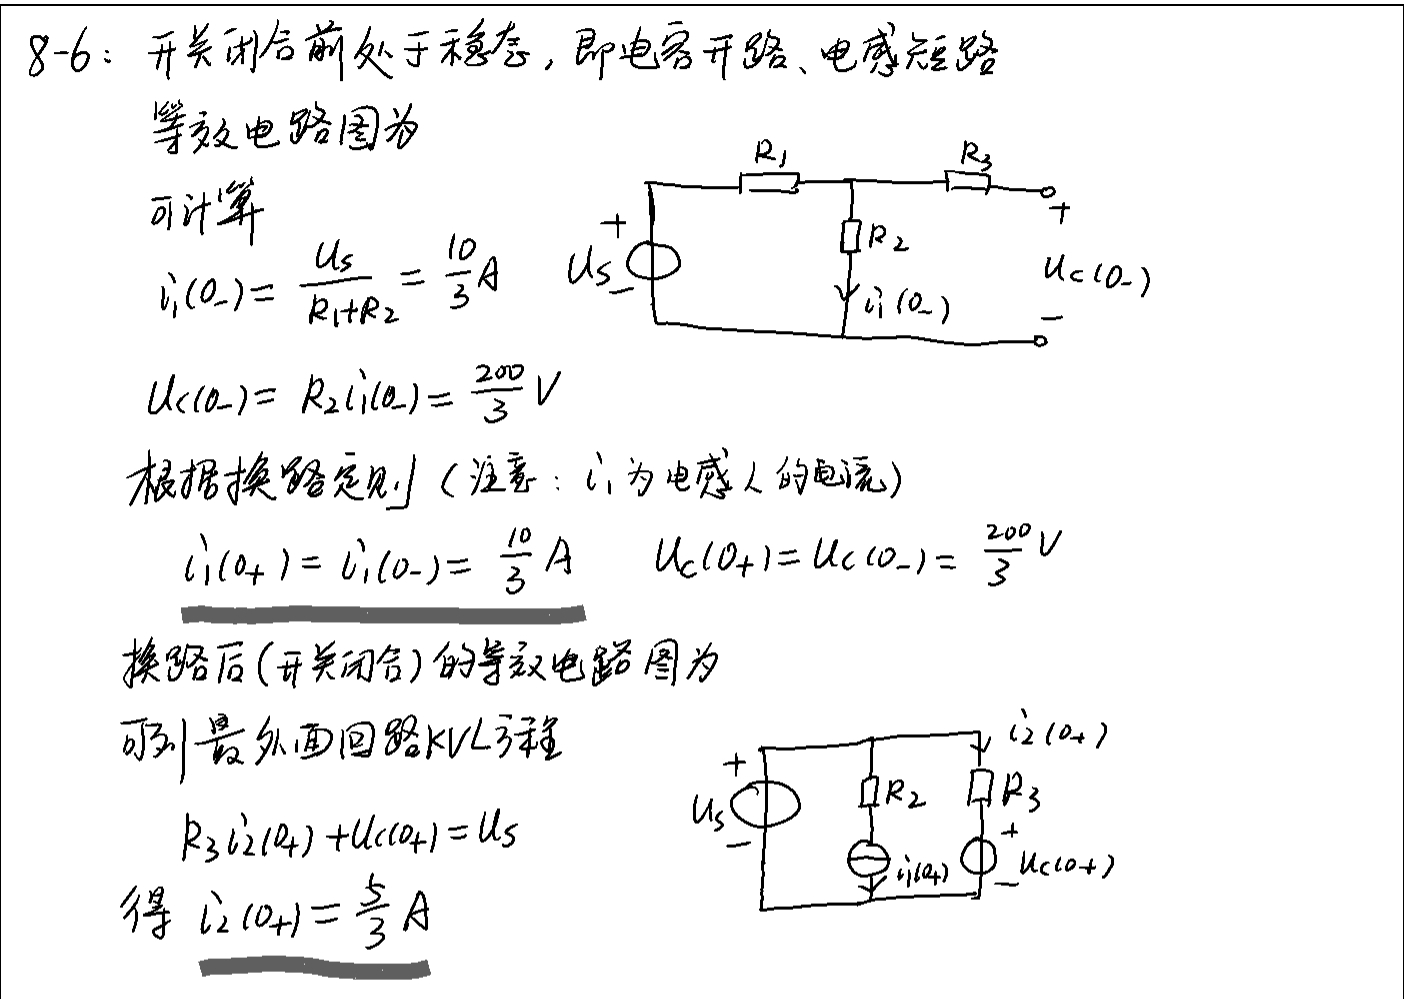 8-6: 开关闭合前处于稳态，即电容开路、电感短路
等效电路图为
可计算
i₁(0₋) = Us/(R₁+R₂) = 10/3 A
Uc(0₋) = R₂i₁(0₋) = 200/3 V
R₁
R₃
+
Us
−
R₂
i₁(0₋)
+
Uc(0₋)
−
根据换路定则 (注意: i₁为电感L的电流)
i₁(0₊) = i₁(0₋) = 10/3 A Uc(0₊) = Uc(0₋) = 200/3 V
换路后(开关闭合)的等效电路图为
可列最外面回路KVL方程
R₃i₂(0₊) + Uc(0₊) = Us
得 i₂(0₊) = 5/3 A
i₂(0₊)
+
Us
−
R₂
R₃
i₁(0₊)
+
−
Uc(0₊)